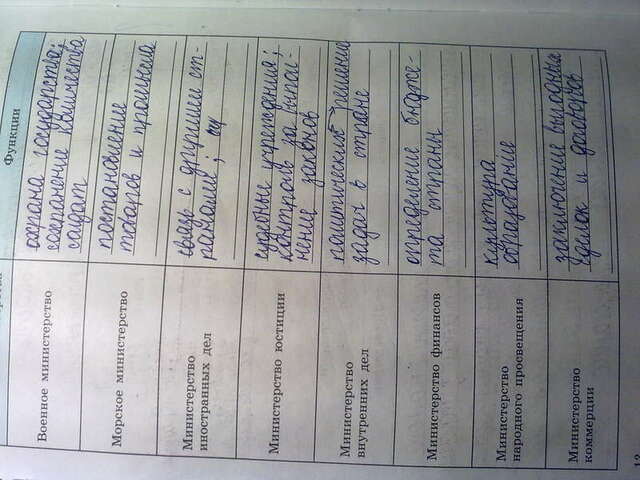 Функции
Военное министерство
охрана государства;
сохранение количества
солдат
Морское министерство
постановление
товаров и
Министерство
иностранных дел
связь с другими ст-
ранами;
Министерство юстиции
судебные учреждения;
контроль за выпол-
нение законов
Министерство
внутренних дел
политических решение
задач в стране
Министерство финансов
определение бюдже-
та страны
Министерство
народного просвещения
культура
образование
Министерство
коммерции
заключение выгодных
сделок и договоров